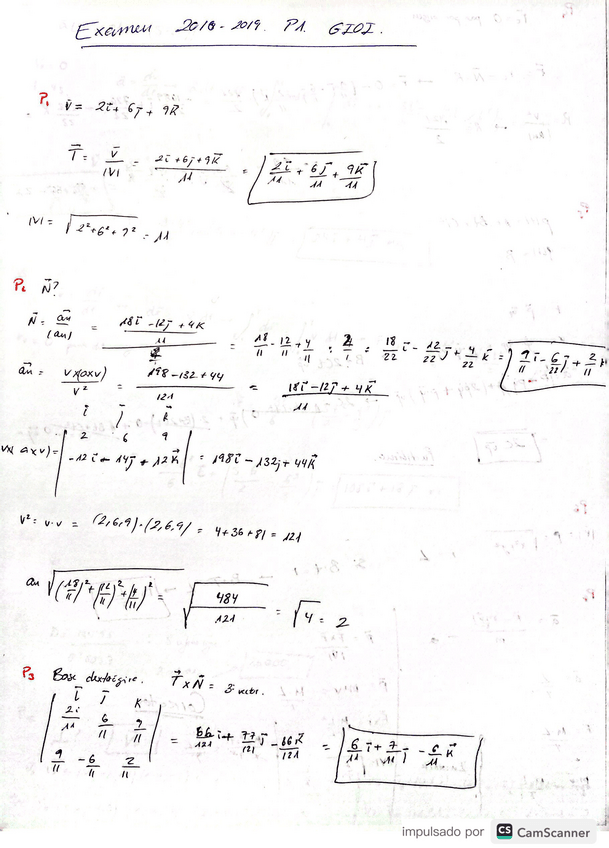 Examen 2018-2019. P1. GIOI.
P1 v̄ = 2ī + 6j̄ + 9k̄
T̄ = v̄/|v| = (2ī+6j̄+9k̄)/11 = 2ī/11 + 6j̄/11 + 9k̄/11
|v| = √(2²+6²+9²) = 11
P2 N̄?
N̄ = an/|an| = ((18ī -12j̄ +4k)/11)/2 = 18/11 - 12/11 + 4/11 : 2/1 = 18/22 ī - 12/22 j̄ + 4/22 k̄ = 9/11 ī - 6/22 j̄ + 2/11 k
an = vx(axv)/v² = (198-132+44)/121 = (18ī-12j̄+4k̄)/11
ī j̄ k̄
2 6 9
vx(axv) = | -12ī + 14j̄ + 12k̄ | = 198ī -132j + 44k̄
v² = v·v = (2,6,9)·(2,6,9) = 4+36+81 = 121
an √((18/11)²+(12/11)²+(4/11)²) = √(484/121) = √4 = 2
P3 Base dextrógira. T̄ x N̄ = 3er vector.
ī j̄ k
2ī/11 6/11 9/11
9/11 -6/11 2/11
= 66/121 ī + 77/121 j̄ - 66k̄/121 = 6/11 ī + 7/11 j̄ - 6/11 k̄
impulsado por CS CamScanner